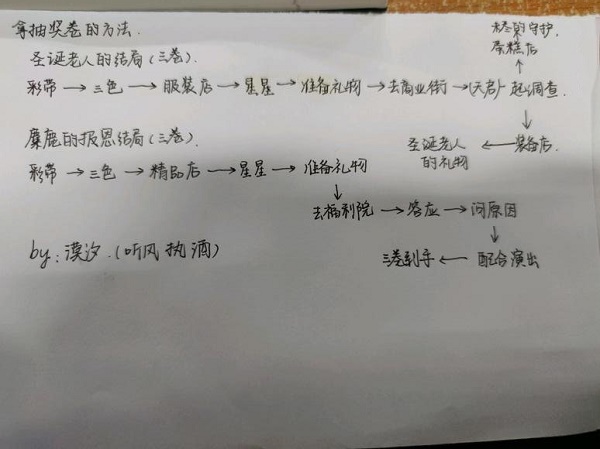 拿抽奖卷的方法.
圣诞老人的结局(三卷).
彩带→三色→服装店→星星→准备礼物→去商业街→(天君)一起调查.
的守护
蛋糕店
圣诞老人的礼物←装备店.
麋鹿的报恩结局(三卷).
彩带→三色→精品店→星星→准备礼物
去福利院→答应→问原因
三卷到手←配合演出
by:漠汐.(听风执酒)